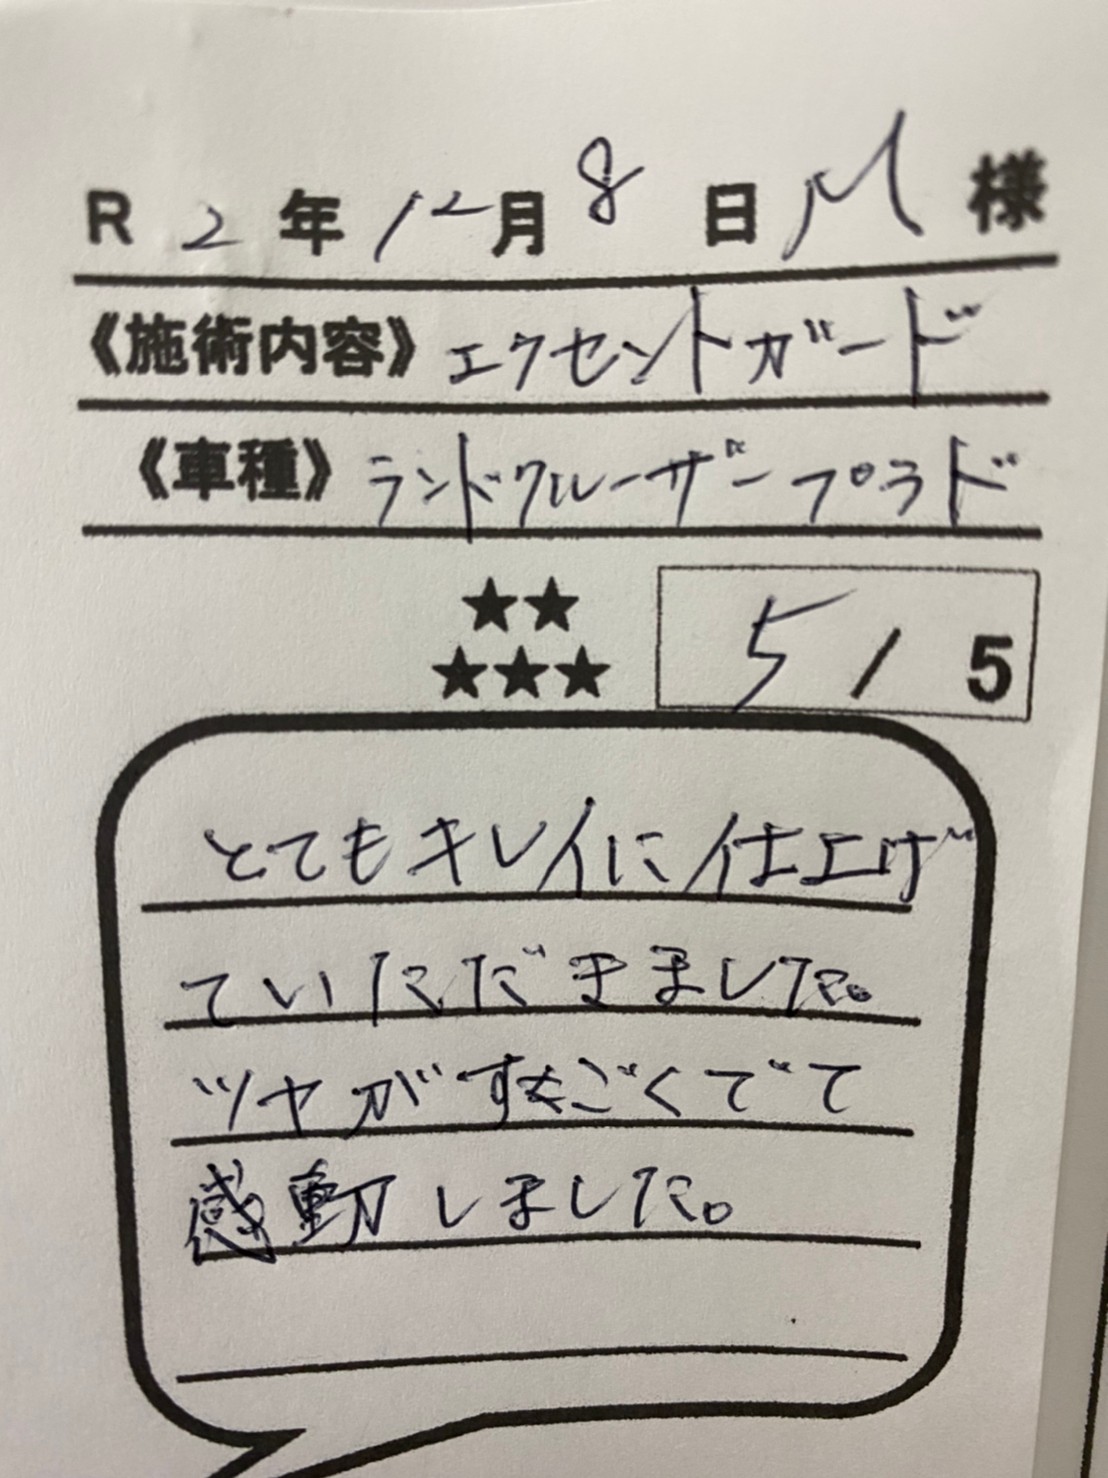 R 2 年 12 月 8 日 M 様
《施術内容》エクセントガード
《車種》ランドクルーザープラド
★★
★★★ 5 / 5
とてもキレイに仕上げ
ていただきました。
ツヤがすごくでて
感動しました。